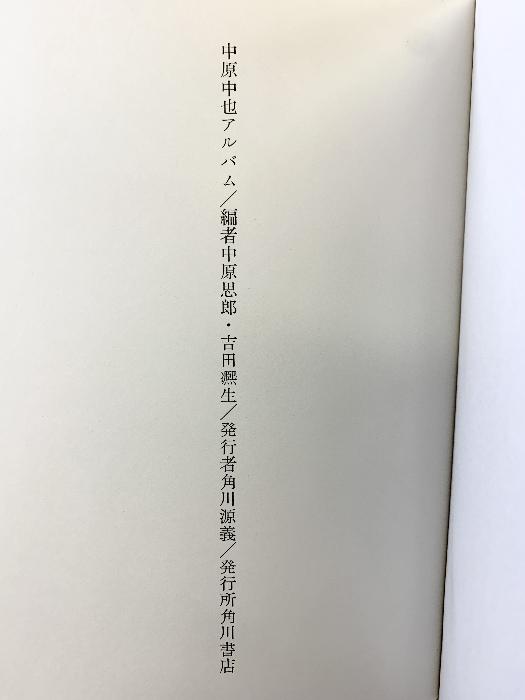 中原中也アルバム／編者中原思郎・吉田凞生／発行者角川源義／発行所角川書店